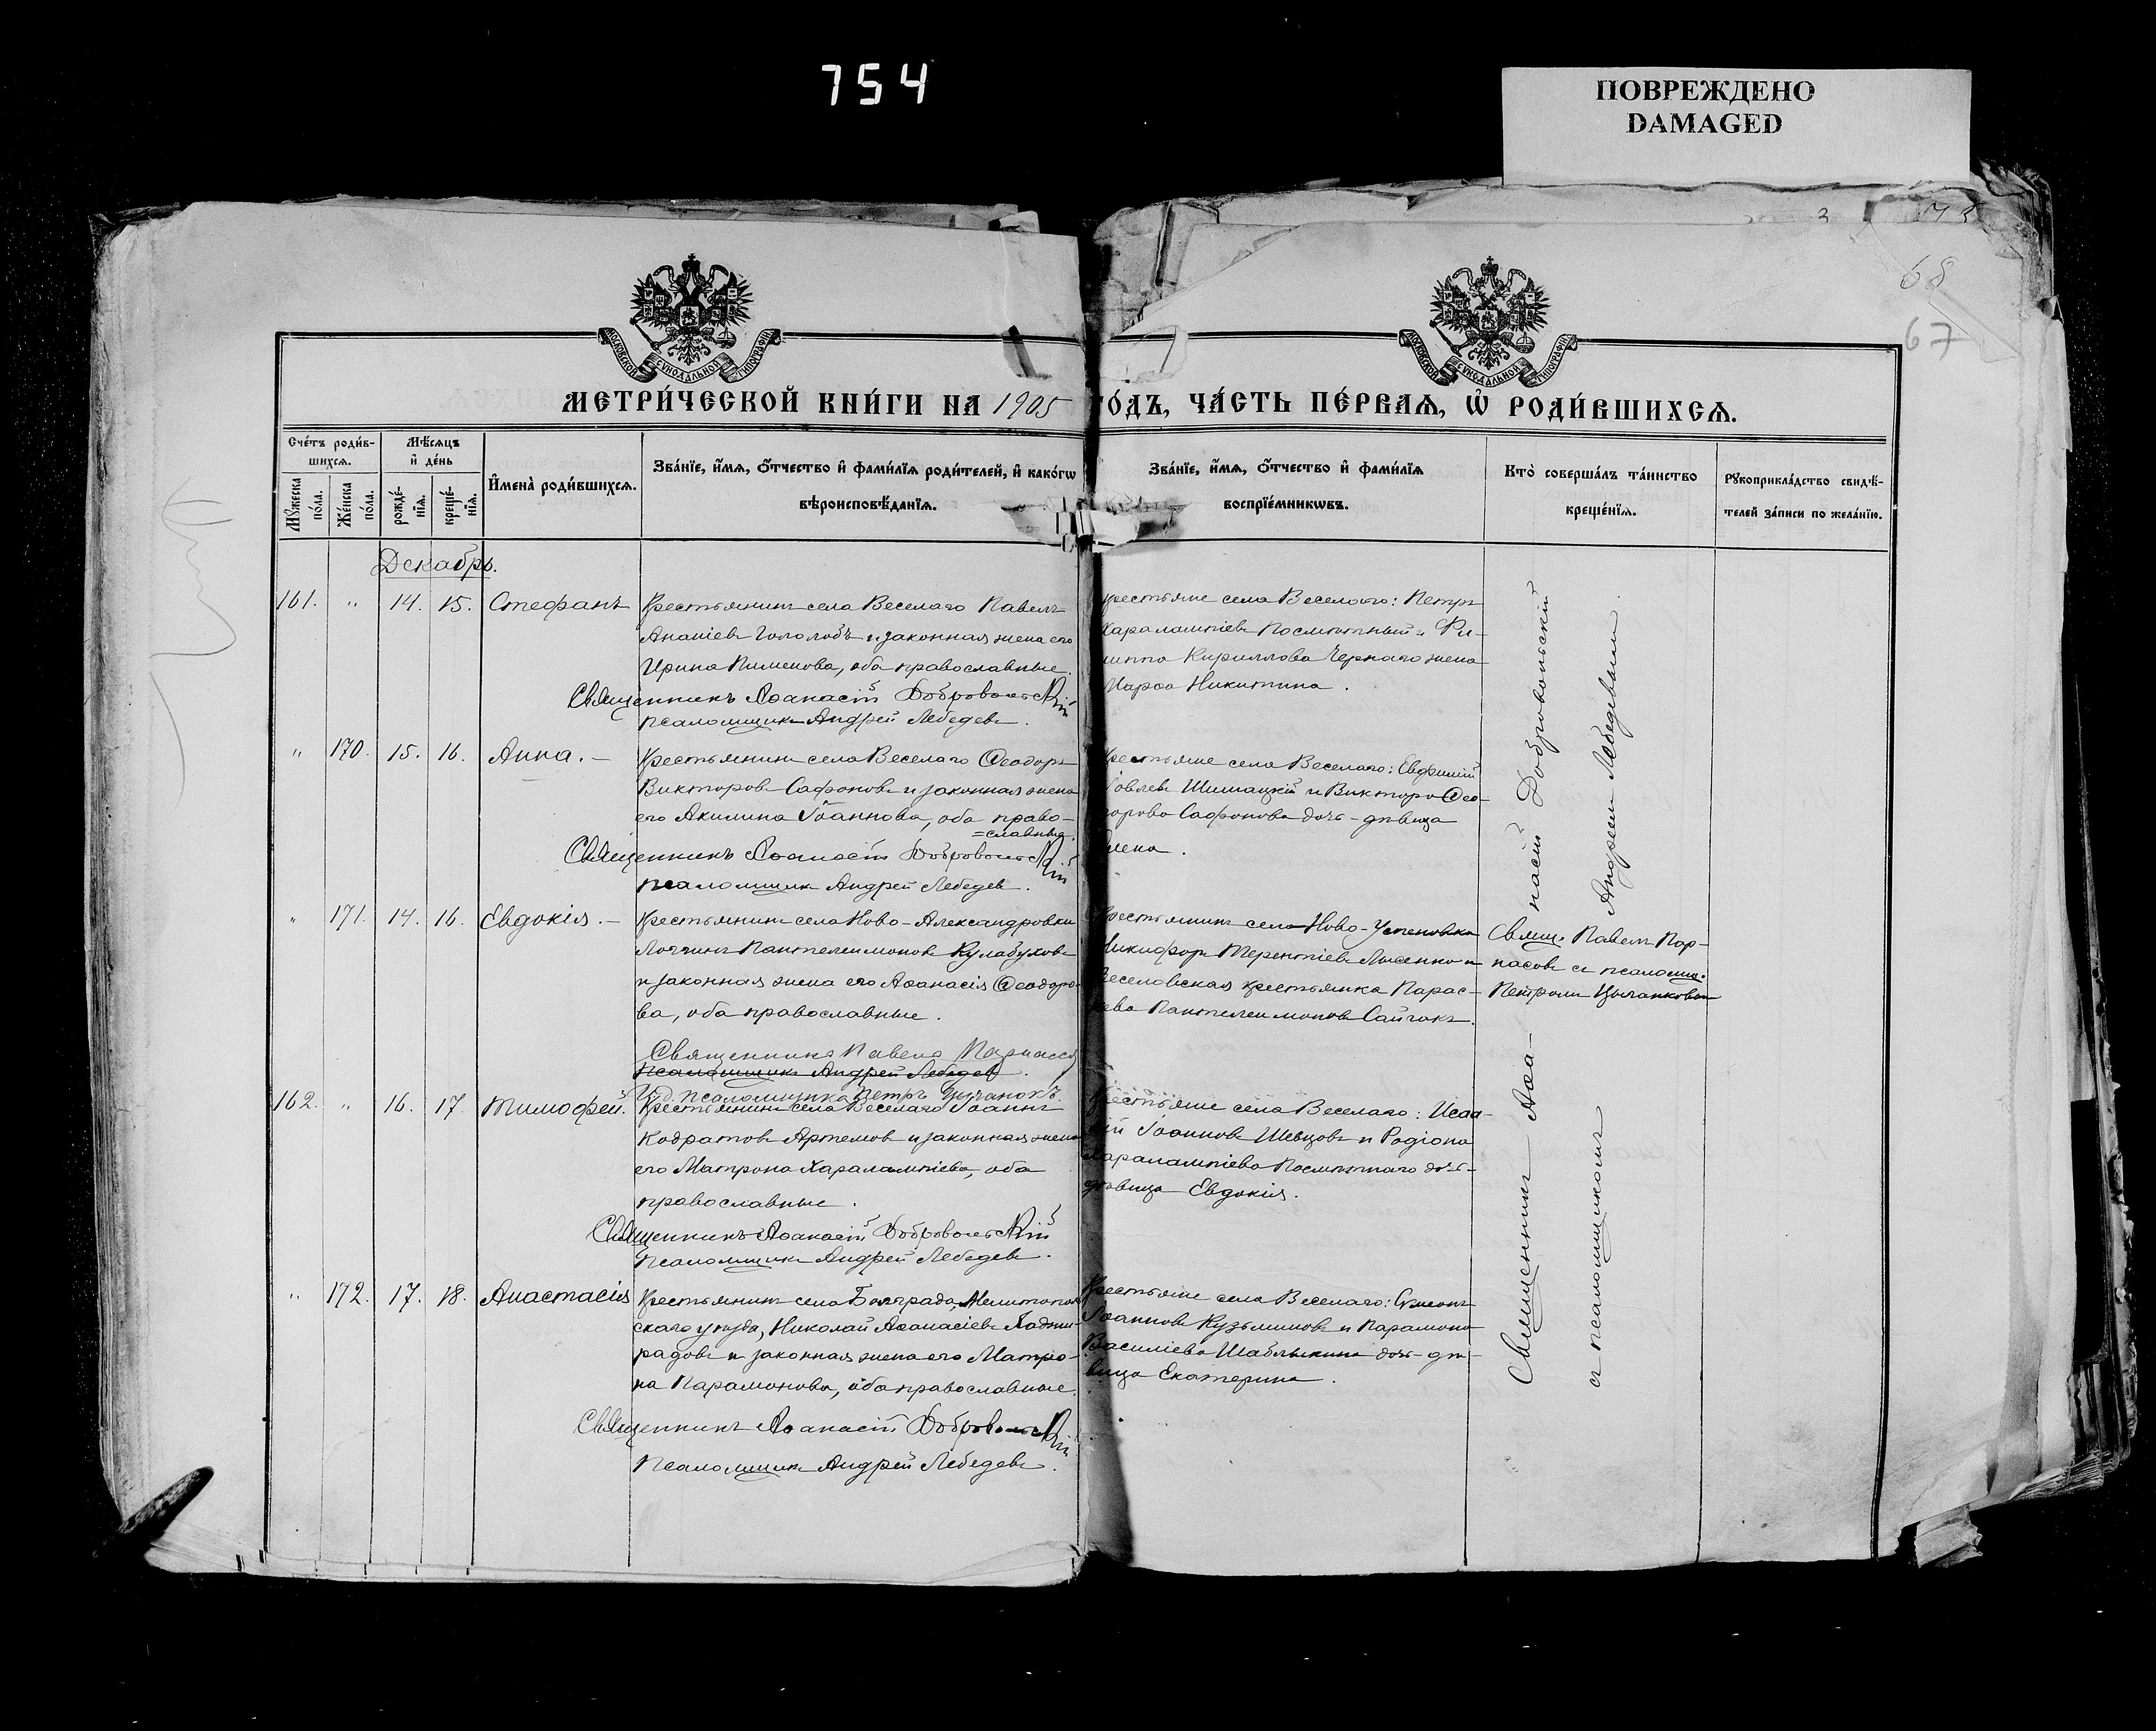 754
ПОВРЕЖДЕНО
DAMAGED
68
67
МОСКОВСКОЙ СѴНОДАЛЬНОЙ ТИПОГРАФІИ
МОСКОВСКОЙ СѴНОДАЛЬНОЙ ТИПОГРАФІИ
МЕТРИ́ЧЕСКОЙ КНИ́ГИ НА 1905 ГО́ДЪ, ЧА́СТЬ ПЕ́РВАѦ, Ѽ РОДИ́ВШИХСѦ.
Сче́тъ роди́в-
шихсѧ.
Мꙋжеска по́ла.
Же́нска по́ла.
Мѣ́сѧцъ
и҆ де́нь
рожде́-
нїѧ.
креще́-
нїѧ.
И҆мена̀ роди́вшихсѧ.
Зва́нїе, и҆́мѧ, ѻ҆́тчество и҆ фами́лїѧ роди́телей, и҆ како́гѡ
вѣроисповѣ́данїѧ.
Зва́нїе, и҆́мѧ, ѻ҆́тчество и҆ фами́лїѧ
воспрїе́мникѡвъ.
Кто̀ соверша́лъ та́инство
креще́нїѧ.
Рꙋкоприкла́дство свидѣ́-
телей за́писи по жела́нїю.
Декабрь.
161. " 14. 15. Стефанъ
Крестьянинъ села Веселаго Павелъ
Ананіевъ Гололобъ и законная жена его
Ирина Пименова, оба православные.
Священникъ Аѳанасій Добровольскій
псаломщикъ Андрей Лебедевъ.
крестьяне села Веселаго: Петръ
Харалампіевъ Посмитный и Фи-
липпа Кириллова Чернаго жена
Марѳа Никитина.
" 170. 15. 16. Анна. –
Крестьянинъ села Веселаго Ѳеодоръ
Викторовъ Сафоновъ и законная жена
его Акилина Іоаннова, оба право-
=славные.
Священникъ Аѳанасій Добровольскій
псаломщикъ Андрей Лебедевъ.
Крестьяне села Веселаго: Евфимій
Іовлевъ Шишацкій и Виктора Ѳео-
дорова Сафонова дочь-дѣвица
Елена.
" 171. 14. 16. Евдокія. –
Крестьянинъ села Ново-Александровки
Логгинъ Пантелеимоновъ Кулабуховъ
и законная жена его Аѳанасія Ѳеодоро-
ва, оба православные.
Священникъ Павелъ Парнасовъ
псаломщикъ Андрей Лебедевъ.
И.д. псаломщика Петръ Цыганокъ.
Крестьянинъ села Ново-Успеновки
Никифоръ Терентіевъ Лысенко и
Веселовская крестьянка Парас-
кева Пантелеимонова Сайгакъ.
Свящ. Павелъ Пар-
насовъ съ псаломщ.
Петромъ Цыганковымъ
162. " 16. 17. Тимофей.
Крестьянинъ села Веселаго Іоаннъ
Кодратовъ Артемовъ и законная жена
его Матрона Харалампіева, оба
православные.
Священникъ Аѳанасій Добровольскій
псаломщикъ Андрей Лебедевъ.
Крестьяне села Веселаго: Исаа-
кій Іоанновъ Шевцовъ и Родіона
Харалампіева Посмитнаго дочь-
дѣвица Евдокія.
" 172. 17. 18. Анастасія
Крестьянинъ села Болграда, Мелитополь-
скаго уѣзда, Николай Аѳанасіевъ Хаджи-
радовъ и законная жена его Матро-
на Парамонова, оба православные.
Священникъ Аѳанасій Добровольскій
Псаломщикъ Андрей Лебедевъ.
Крестьяне села Веселаго: Сѵмеонъ
Іоанновъ Кузьминовъ и Парамона
Василіева Шаблыкина дочь-дѣ-
вица Екатерина.
Священникъ Аѳа-
насій Добровольскій
съ псаломщикомъ
Андреемъ Лебедевымъ.